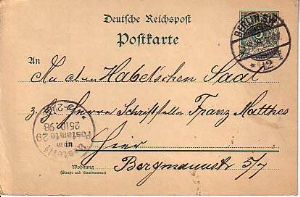 Deutsche Reichspost
Postkarte
An
An den Habel'schen Saal
z. H. Herrn Schriftsteller Franz Matthes
Hier
in
Bergmannstr 5/7
Wohnung
(Straße und Hausnummer)
BERLIN S.W.
Postamt 29
25/10 98